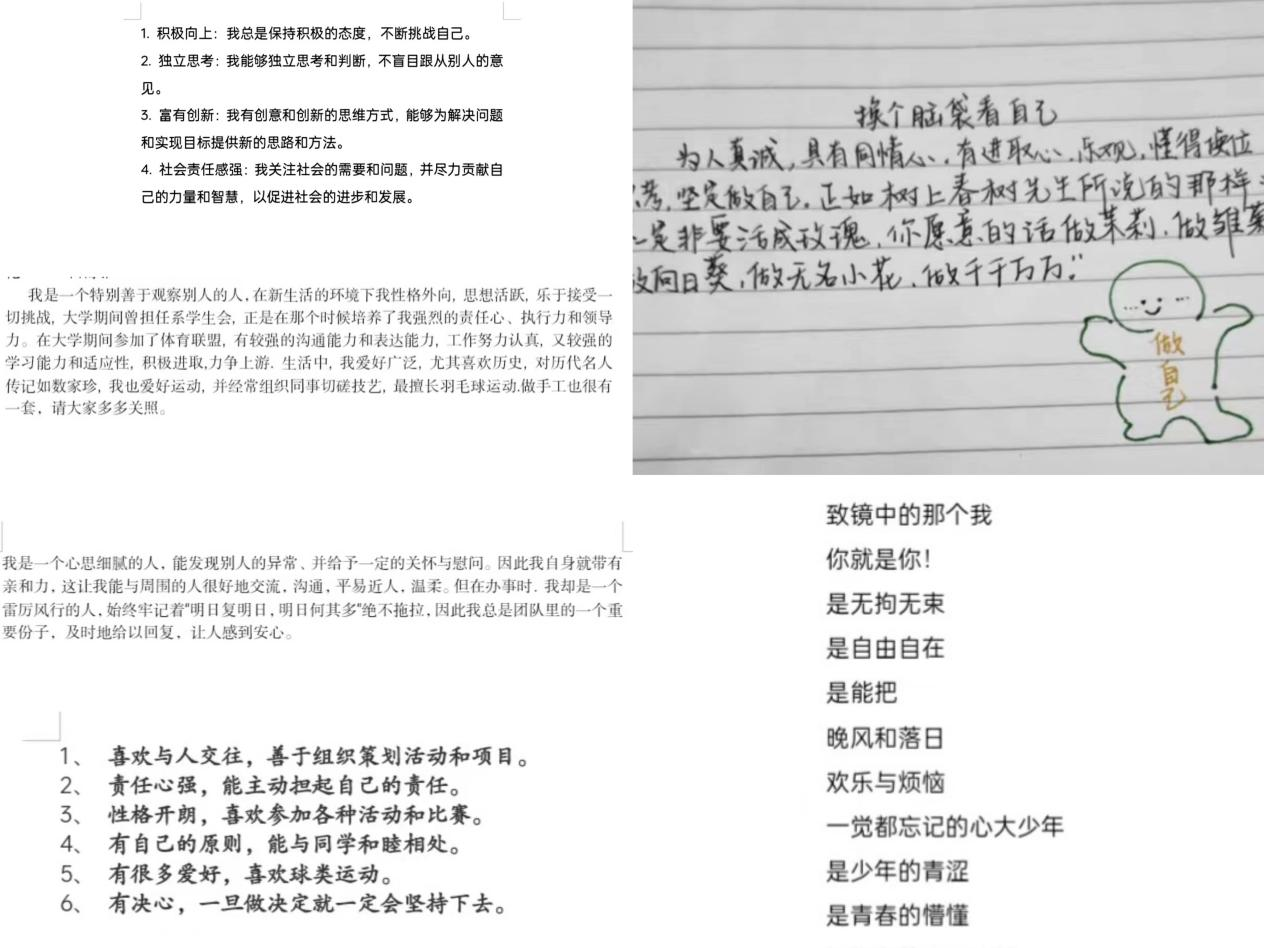 1. 积极向上：我总是保持积极的态度，不断挑战自己。
2. 独立思考：我能够独立思考和判断，不盲目跟从别人的意
见。
3. 富有创新：我有创意和创新的思维方式，能够为解决问题
和实现目标提供新的思路和方法。
4. 社会责任感强：我关注社会的需要和问题，并尽力贡献自
己的力量和智慧，以促进社会的进步和发展。
我是一个特别善于观察别人的人,在新生活的环境下我性格外向, 思想活跃, 乐于接受一
切挑战, 大学期间曾担任系学生会, 正是在那个时候培养了我强烈的责任心、执行力和领导
力。在大学期间参加了体育联盟, 有较强的沟通能力和表达能力, 工作努力认真, 又较强的
学习能力和适应性, 积极进取,力争上游. 生活中, 我爱好广泛, 尤其喜欢历史, 对历代名人
传记如数家珍, 我也爱好运动, 并经常组织同事切磋技艺, 最擅长羽毛球运动.做手工也很有
一套, 请大家多多关照。
我是一个心思细腻的人, 能发现别人的异常、并给予一定的关怀与慰问。因此我自身就带有
亲和力, 这让我能与周围的人很好地交流, 沟通, 平易近人, 温柔。但在办事时. 我却是一个
雷厉风行的人, 始终牢记着"明日复明日, 明日何其多"绝不拖拉, 因此我总是团队里的一个重
要份子, 及时地给以回复, 让人感到安心。
1、 喜欢与人交往，善于组织策划活动和项目。
2、 责任心强，能主动担起自己的责任。
3、 性格开朗，喜欢参加各种活动和比赛。
4、 有自己的原则，能与同学和睦相处。
5、 有很多爱好，喜欢球类运动。
6、 有决心，一旦做决定就一定会坚持下去。
换个脑袋看自己
为人真诚,具有同情心,有进取心,乐观,懂得换位
考,坚定做自己.正如树上春树先生所说的那样
一定非要活成玫瑰,你愿意的话做茉莉,做雏菊
做向日葵,做无名小花,做千千万万."
做
自
己
致镜中的那个我
你就是你！
是无拘无束
是自由自在
是能把
晚风和落日
欢乐与烦恼
一觉都忘记的心大少年
是少年的青涩
是青春的懵懂